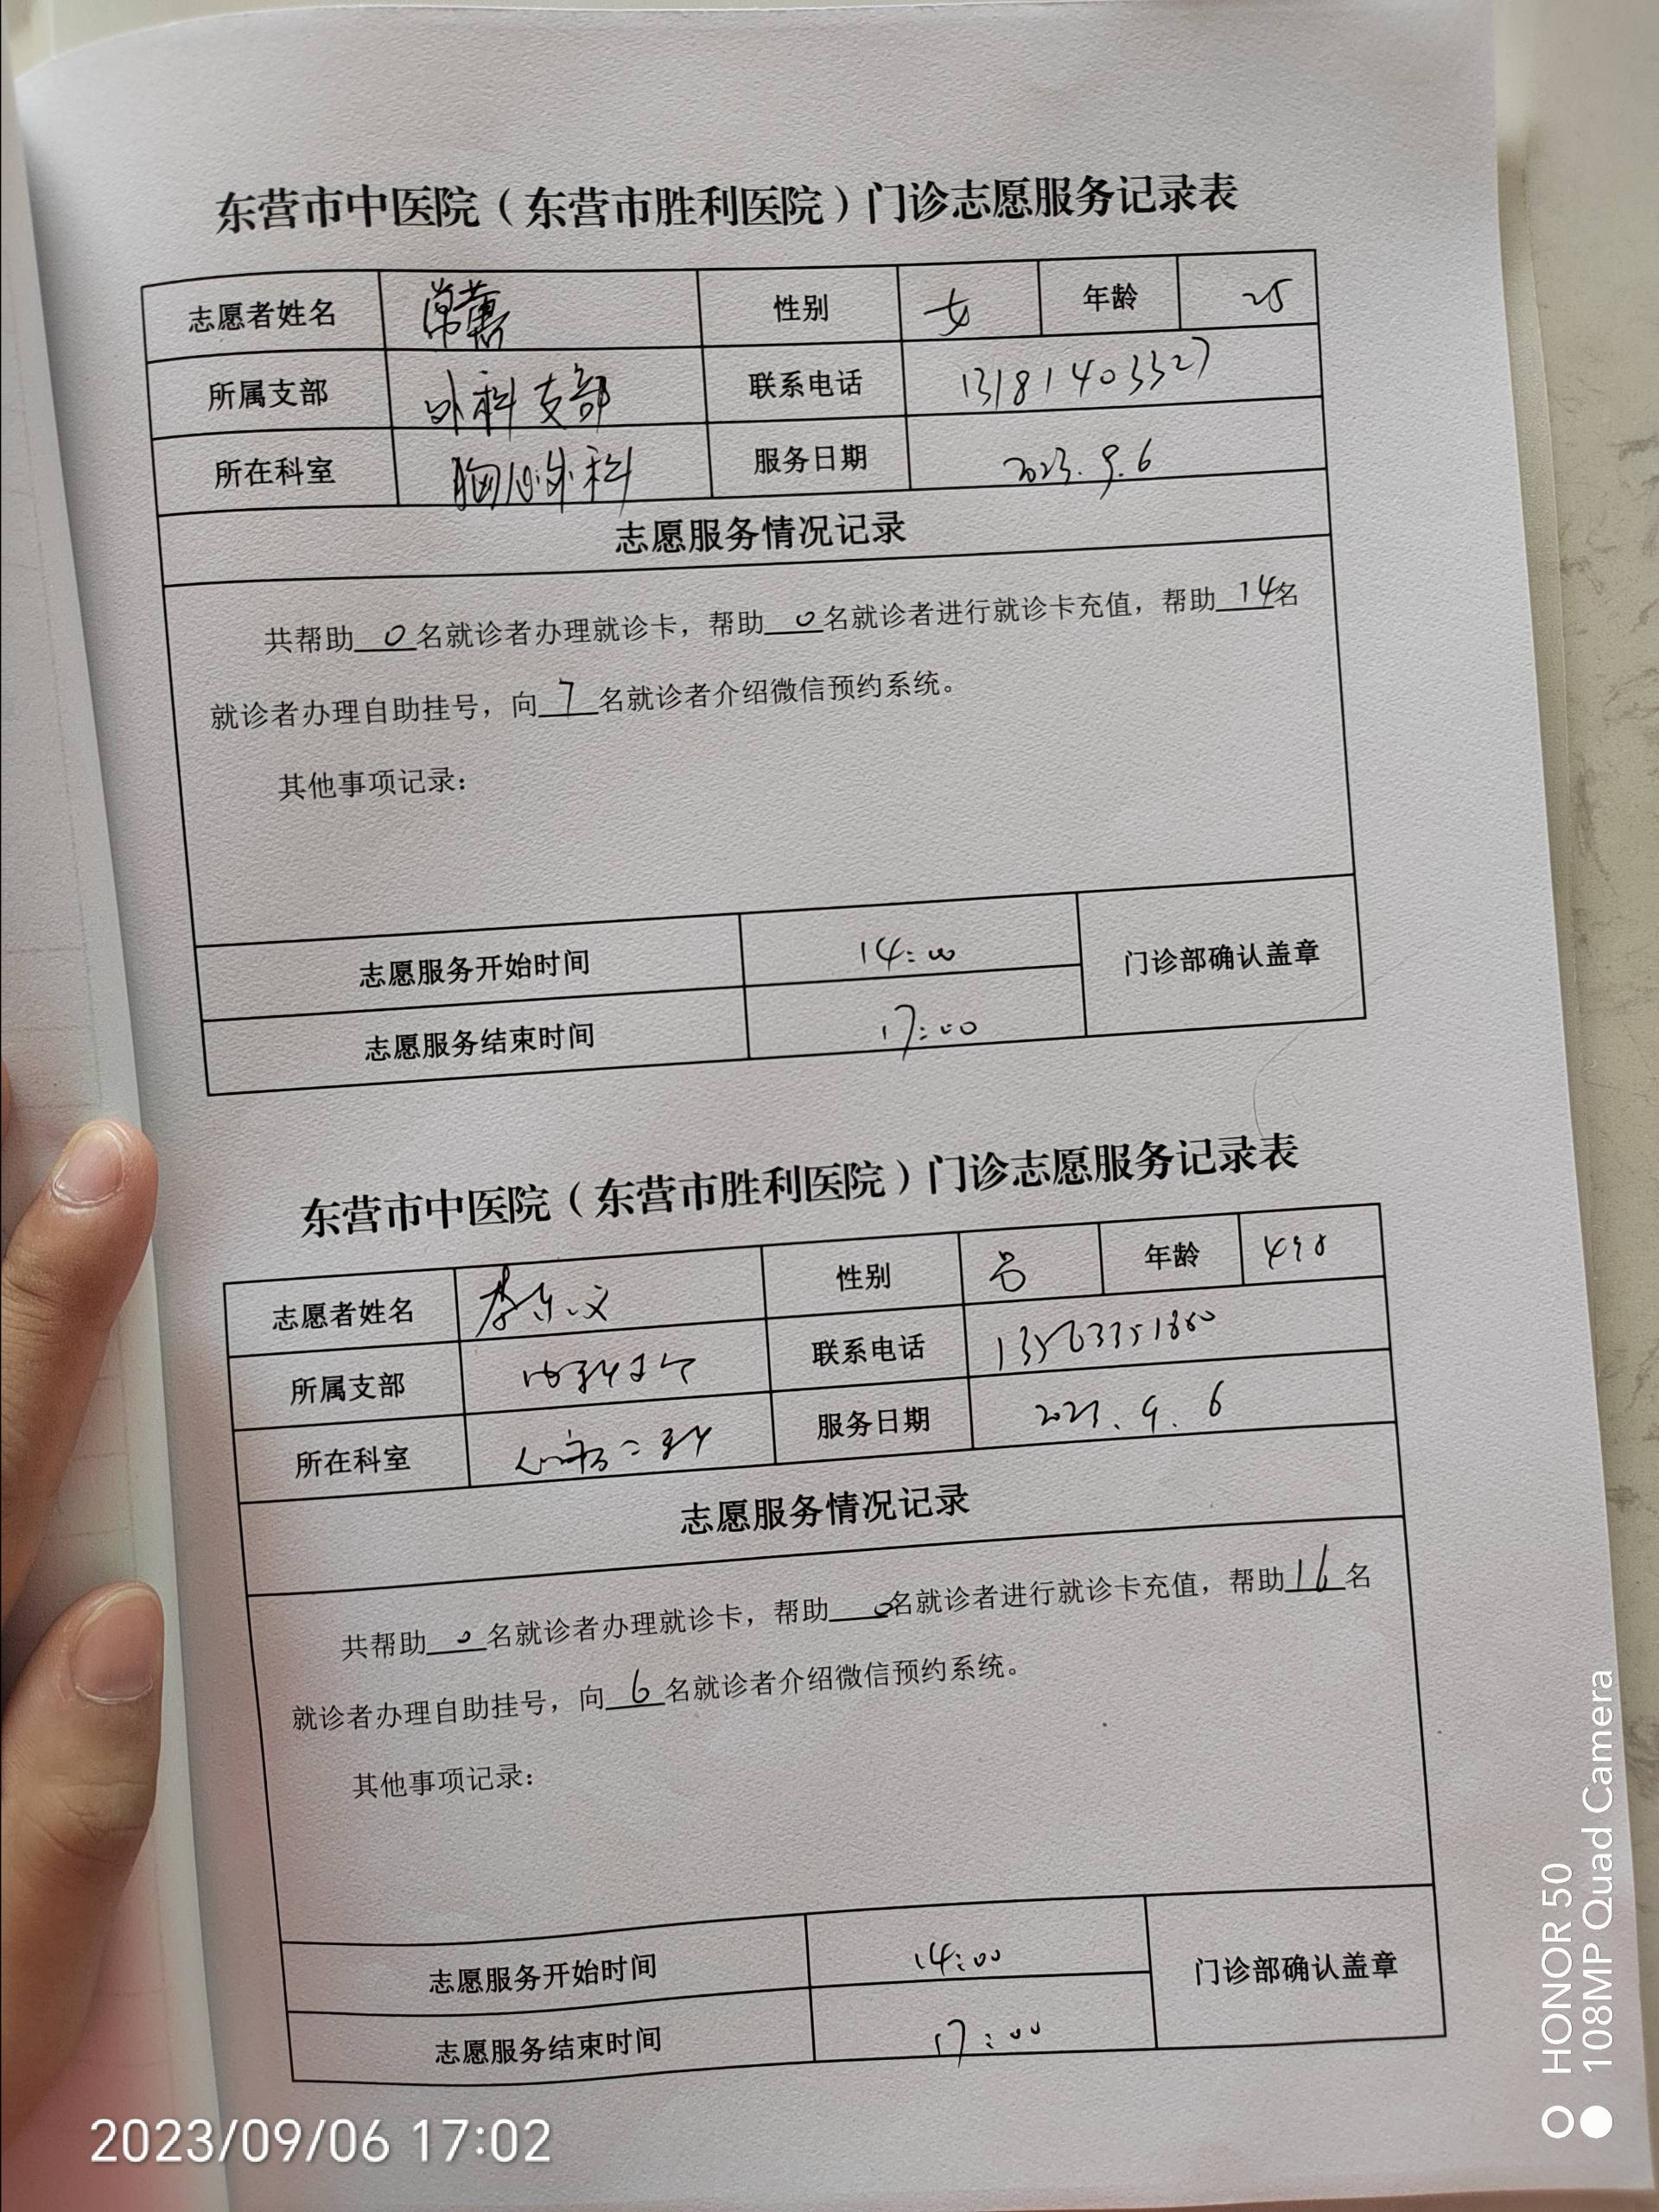 东营市中医院（东营市胜利医院）门诊志愿服务记录表
志愿者姓名 常蕙 性别 女 年龄 25
所属支部 外科支部 联系电话 13181403327
所在科室 胸心外科 服务日期 2023.9.6
志愿服务情况记录
共帮助0名就诊者办理就诊卡，帮助0名就诊者进行就诊卡充值，帮助14名
就诊者办理自助挂号，向7名就诊者介绍微信预约系统。
其他事项记录：
志愿服务开始时间 14:00 门诊部确认盖章
志愿服务结束时间 17:00
东营市中医院（东营市胜利医院）门诊志愿服务记录表
志愿者姓名 李东文 性别 年龄
所属支部 内科支部 联系电话
所在科室 二科 服务日期 2023.9.6
志愿服务情况记录
共帮助0名就诊者办理就诊卡，帮助0名就诊者进行就诊卡充值，帮助16名
就诊者办理自助挂号，向6名就诊者介绍微信预约系统。
其他事项记录：
志愿服务开始时间 14:00 门诊部确认盖章
志愿服务结束时间 17:00
2023/09/06 17:02
HONOR 50
108MP Quad Camera